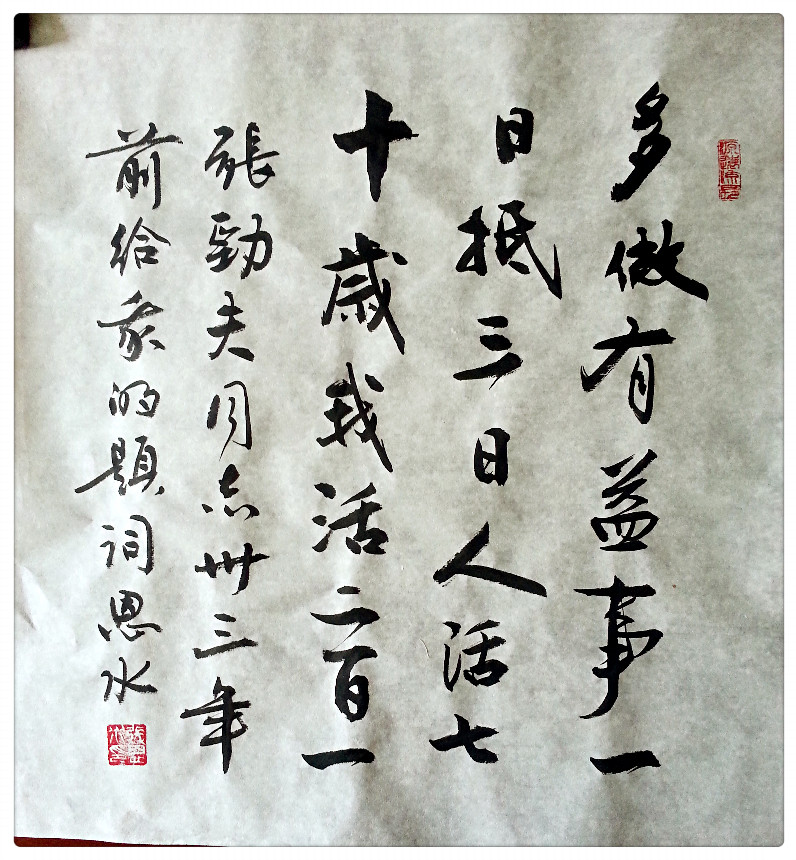 多做有益事一
日抵三日人活七
十歲我活二百一
張勁夫同志卅三年
前给我的題词恩水